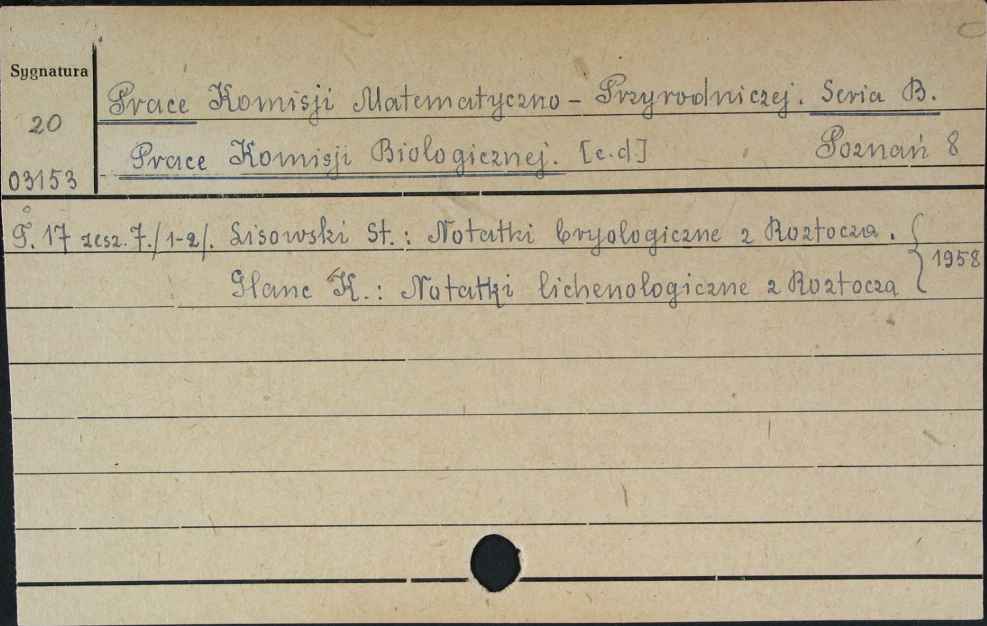 Sygnatura
Prace Komisji Matematyczno - Przyrodniczej. Seria B.
20
Prace Komisji Biologicznej. [c.d] Poznań 8
03153
T. 17 zesz. 7./1-2/. Lisowski St.: Notatki bryologiczne z Roztocza.
1958
Glanc K.: Notatki lichenologiczne z Roztocza